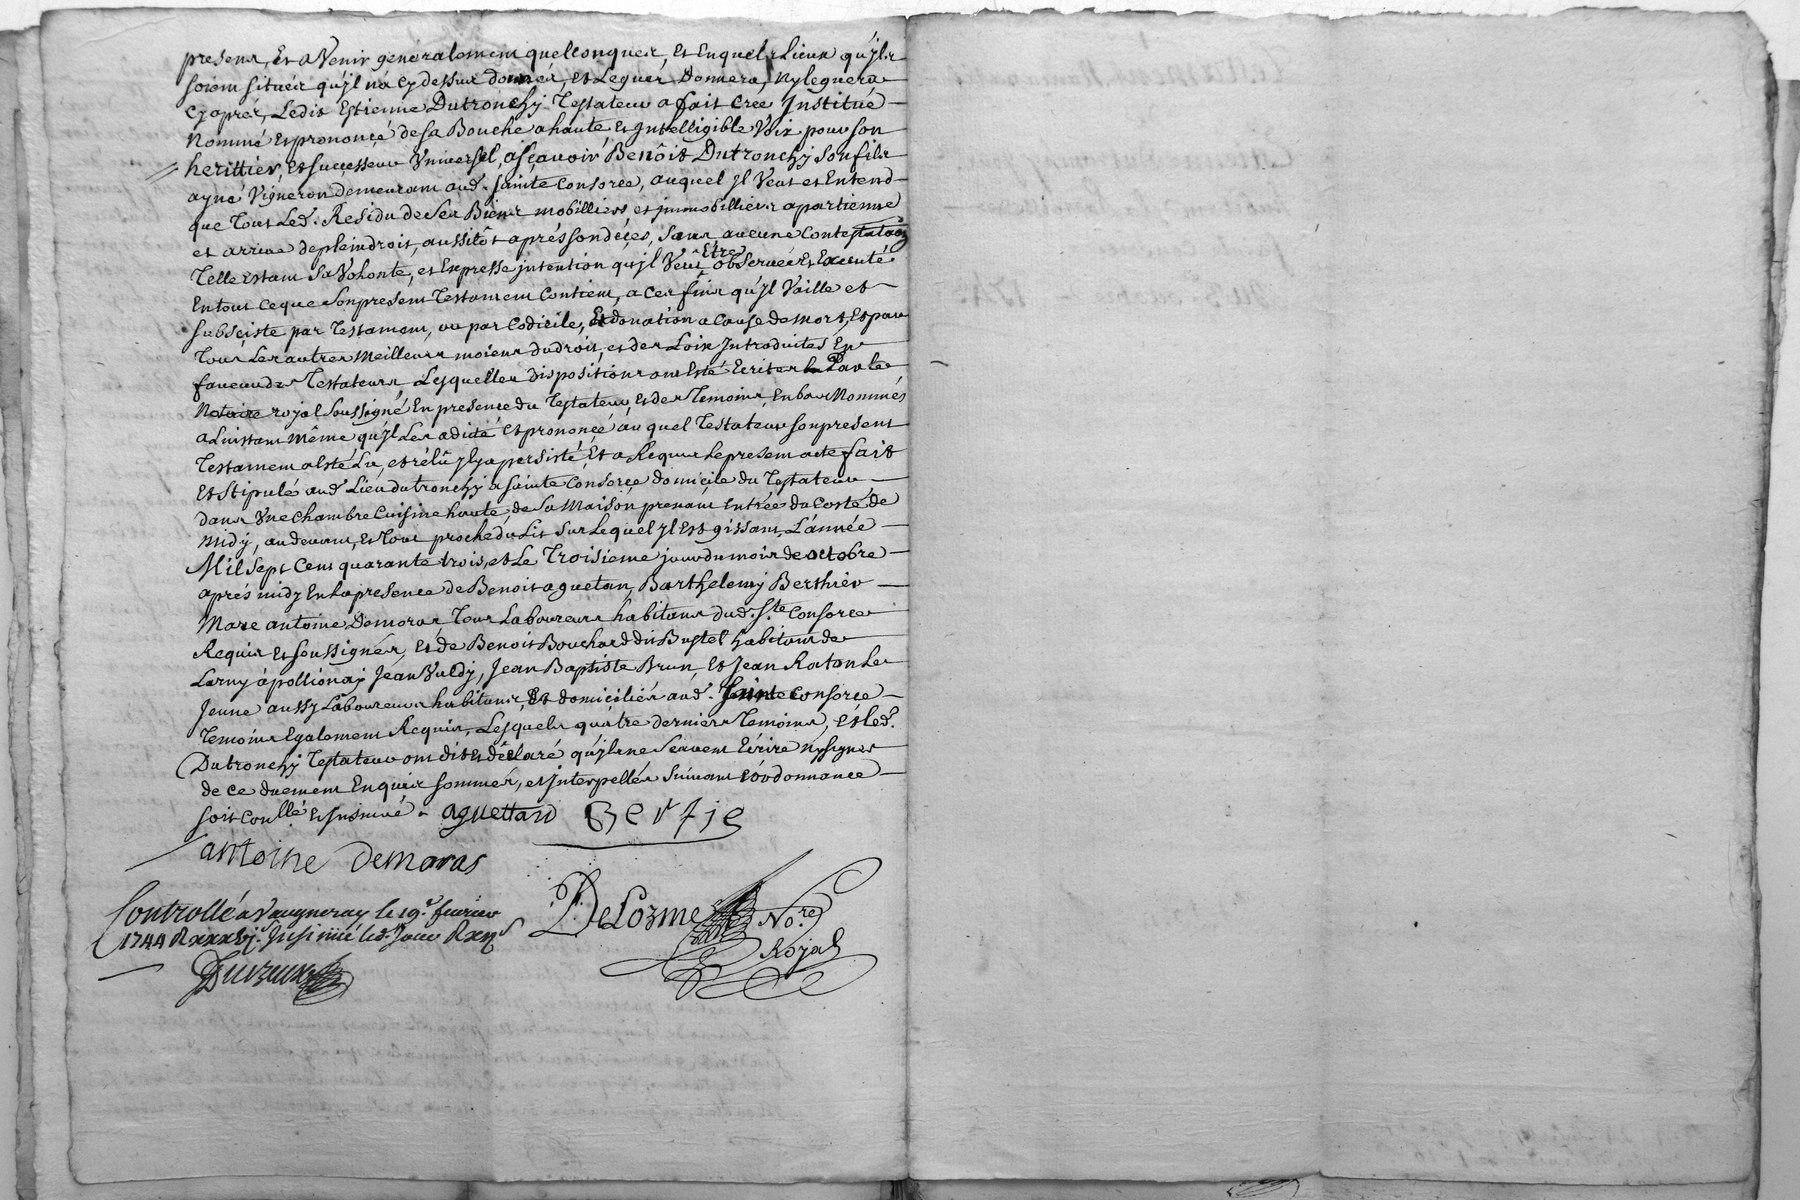 presens, Et a Venir generalement quelconques, Et Enquels Lieux qu'ils
soient situés qu'il n'a cy dessus donnés, et Legués Donnera, ny leguera
cy aprés, Ledit Estienne Dutronchy Testateur a fait cree Institué
Nommé Et prononcé de sa Bouche a haute Et Intelligible Voix pour son
herittier, Et successeur Universel, a scavoir Benôit Dutronchy son fils
ayné Vigneron demeurant aud. Sainte Consorce, auquel Jl Veut et Entend
que Tout Led. Residu de Ses Biens mobilliers et immobilliers apartienne
et arrive de plein droit, aussitôt aprés son décés, sans aucune Contestation
Telle Estant Sa Volonte, et Expresse intention qu'il Veut Etre observée et Executé
En tout ce que Son present Testament Contient, a Ces fins qu'Jl Vaille et
subsciste par Testament, ou par Codicile, Et donation a Cause de mort, Et par
Tous Les autres Meilleurs moiens du droit, et des Loix Introduites En
faveur des Testateurs, Lesquelles dispositions ont Esté Ecrites Par le
Notaire royal Soussigné En presence du Testateur, et des Temoins, En bas Nommés
a L'instant même qu'Jl Les a dicté et prononcé au quel Testateur son present
Testament a Esté Lu, et rélû Jl y a persisté, Et a Requis Le present acte fait
Et stipulé aud. Lieu dutronchy a sainte Consorce domicile du Testateur
dans Une Chambre Cuisine haute, de Sa Maison prenant Entrée du Costé de
Midy, au devant, Et Tout proche du Lit sur Lequel Jl Est gissant, L'année
Mil sept Cent quarante trois, et Le Troisieme jour du mois de octobre
aprés midy En La presence de Benoit aguetan, Barthelemy Berthier
Marc antoine Demoras Tous Laboureurs habitans dud. Ste. Consorce
Requis Et soussignés, Et de Benoit Bouchard dit Bustel habitant de
Larny apollionay Jean Vuldy, Jean Baptiste Brun, Et Jean Raton Le
Jeune aussy Laboureurs habitans, Et domiciliés aud. Sainte Consorce
Temoins Egalement Requis, Lesquels quatre derniers Temoins, et led.
Dutronchy Testateur ont dit et déclaré qu'ils ne Scavent Ecrire ny signer
de ce duement Enquis sommés, et Interpellés Suivant L'ordonnance
soit Conllé Et Insinué. aguettand Bertie
antoine Demoras
Controllé a Vaugneray le 19e. fevrier
1744 R Insinué led. Jour R
DeLorme No.re
Royal